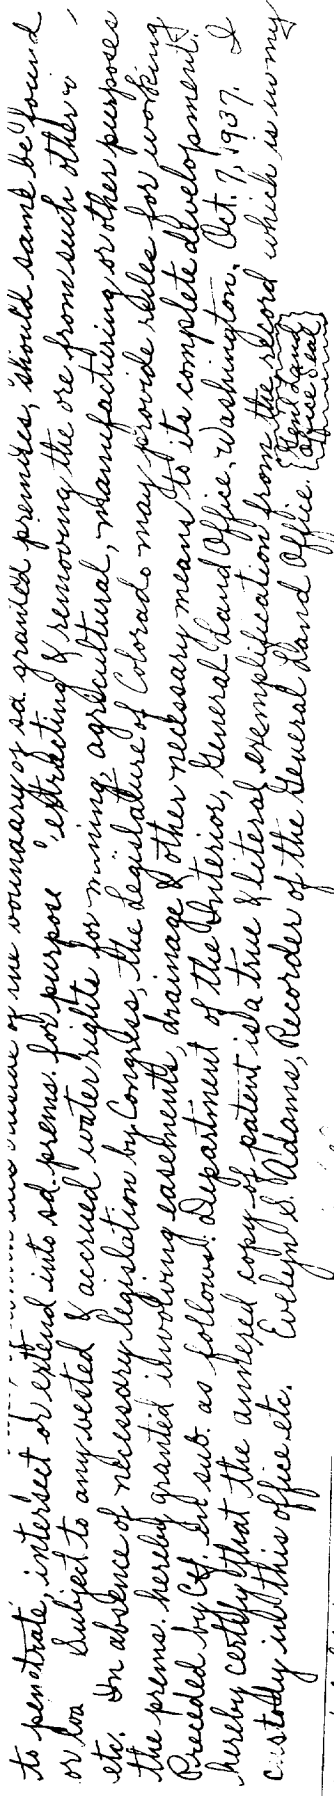 of the boundary of sd. granted premises, should same be found
to penetrate, intersect or extend into sd. prems. for purpose extracting & removing the ore from such other
or loa Subject to any vested & accrued water rights for mining, agricultural, manufacturing or other purposes
etc. In absence of necessary legislation by Congress, the Legislature of Colorado may provide rules for working
the prems. hereby granted involving easements, drainage & other necessary means to its complete development.
Preceded by Ctf. in sub. as follows: Department of the Interior, General Land Office, Washington, Oct. 7, 1937. I
hereby certify that the annexed copy of patent is a true & literal exemplification from the record which is in my
custody in this office etc. Evelyn S. Adams, Recorder of the General Land Office. Genl Land
Office Seal